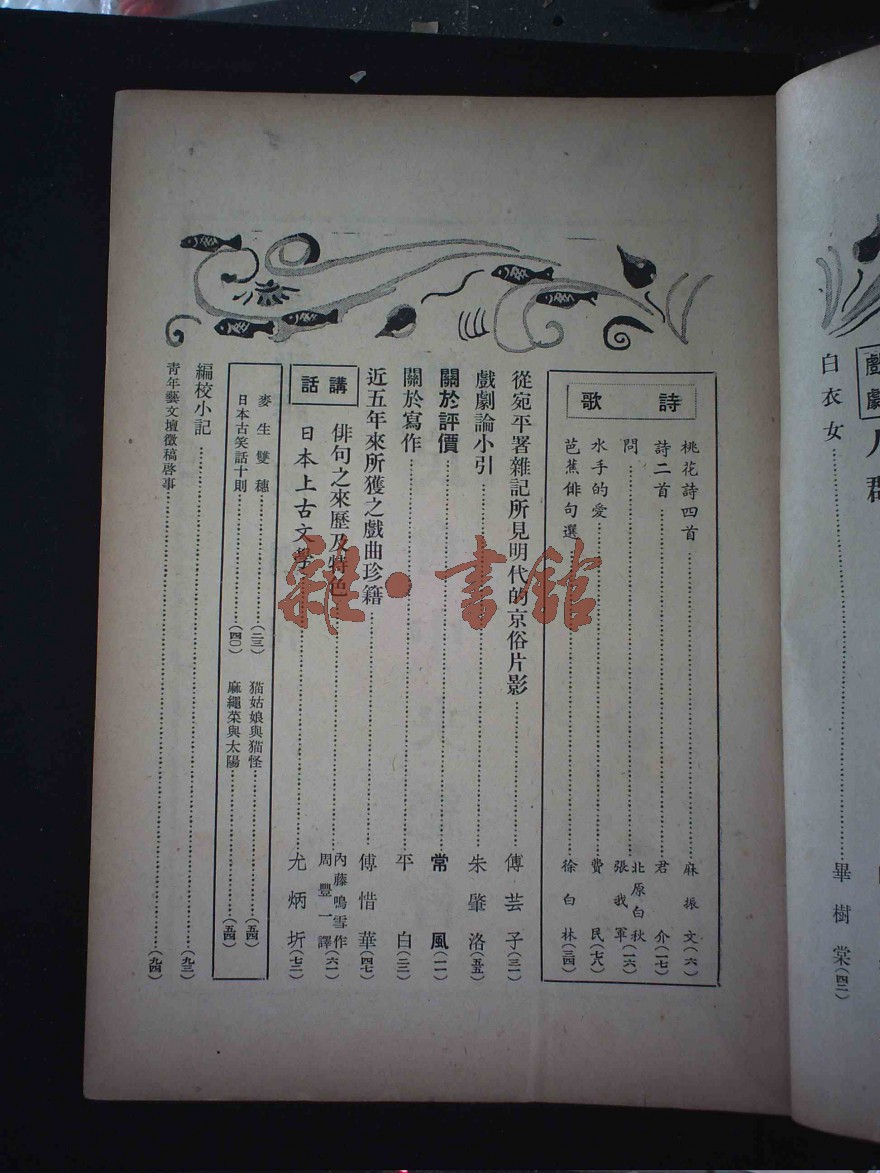 戲劇
白衣女 畢樹棠(四二)
詩歌
桃花詩四首 麻振文(六)
詩二首 君介(一七)
問 北原白秋 張我軍(一六)
水手的愛 費民(七八)
芭蕉俳句選 徐白林(三四)
從宛平署雜記所見明代的京俗片影 傅芸子(三一)
戲劇論小引 朱肇洛(五五)
關於評價 常風(一一)
關於寫作 平白(三三)
近五年來所獲之戲曲珍籍 傅惜華(四七)
講話
俳句之來歷及特色 內藤鳴雪作 周豐一譯(六一)
日本上古文學 尤炳圻(七三)
麥生雙穗 (二三) 猫姑娘與猫怪 (五四)
日本古笑話十則 (四〇) 麻繩菜與太陽 (五四)
編校小記 (九三)
青年藝文壇徵稿啓事 (九四)
雜·書館